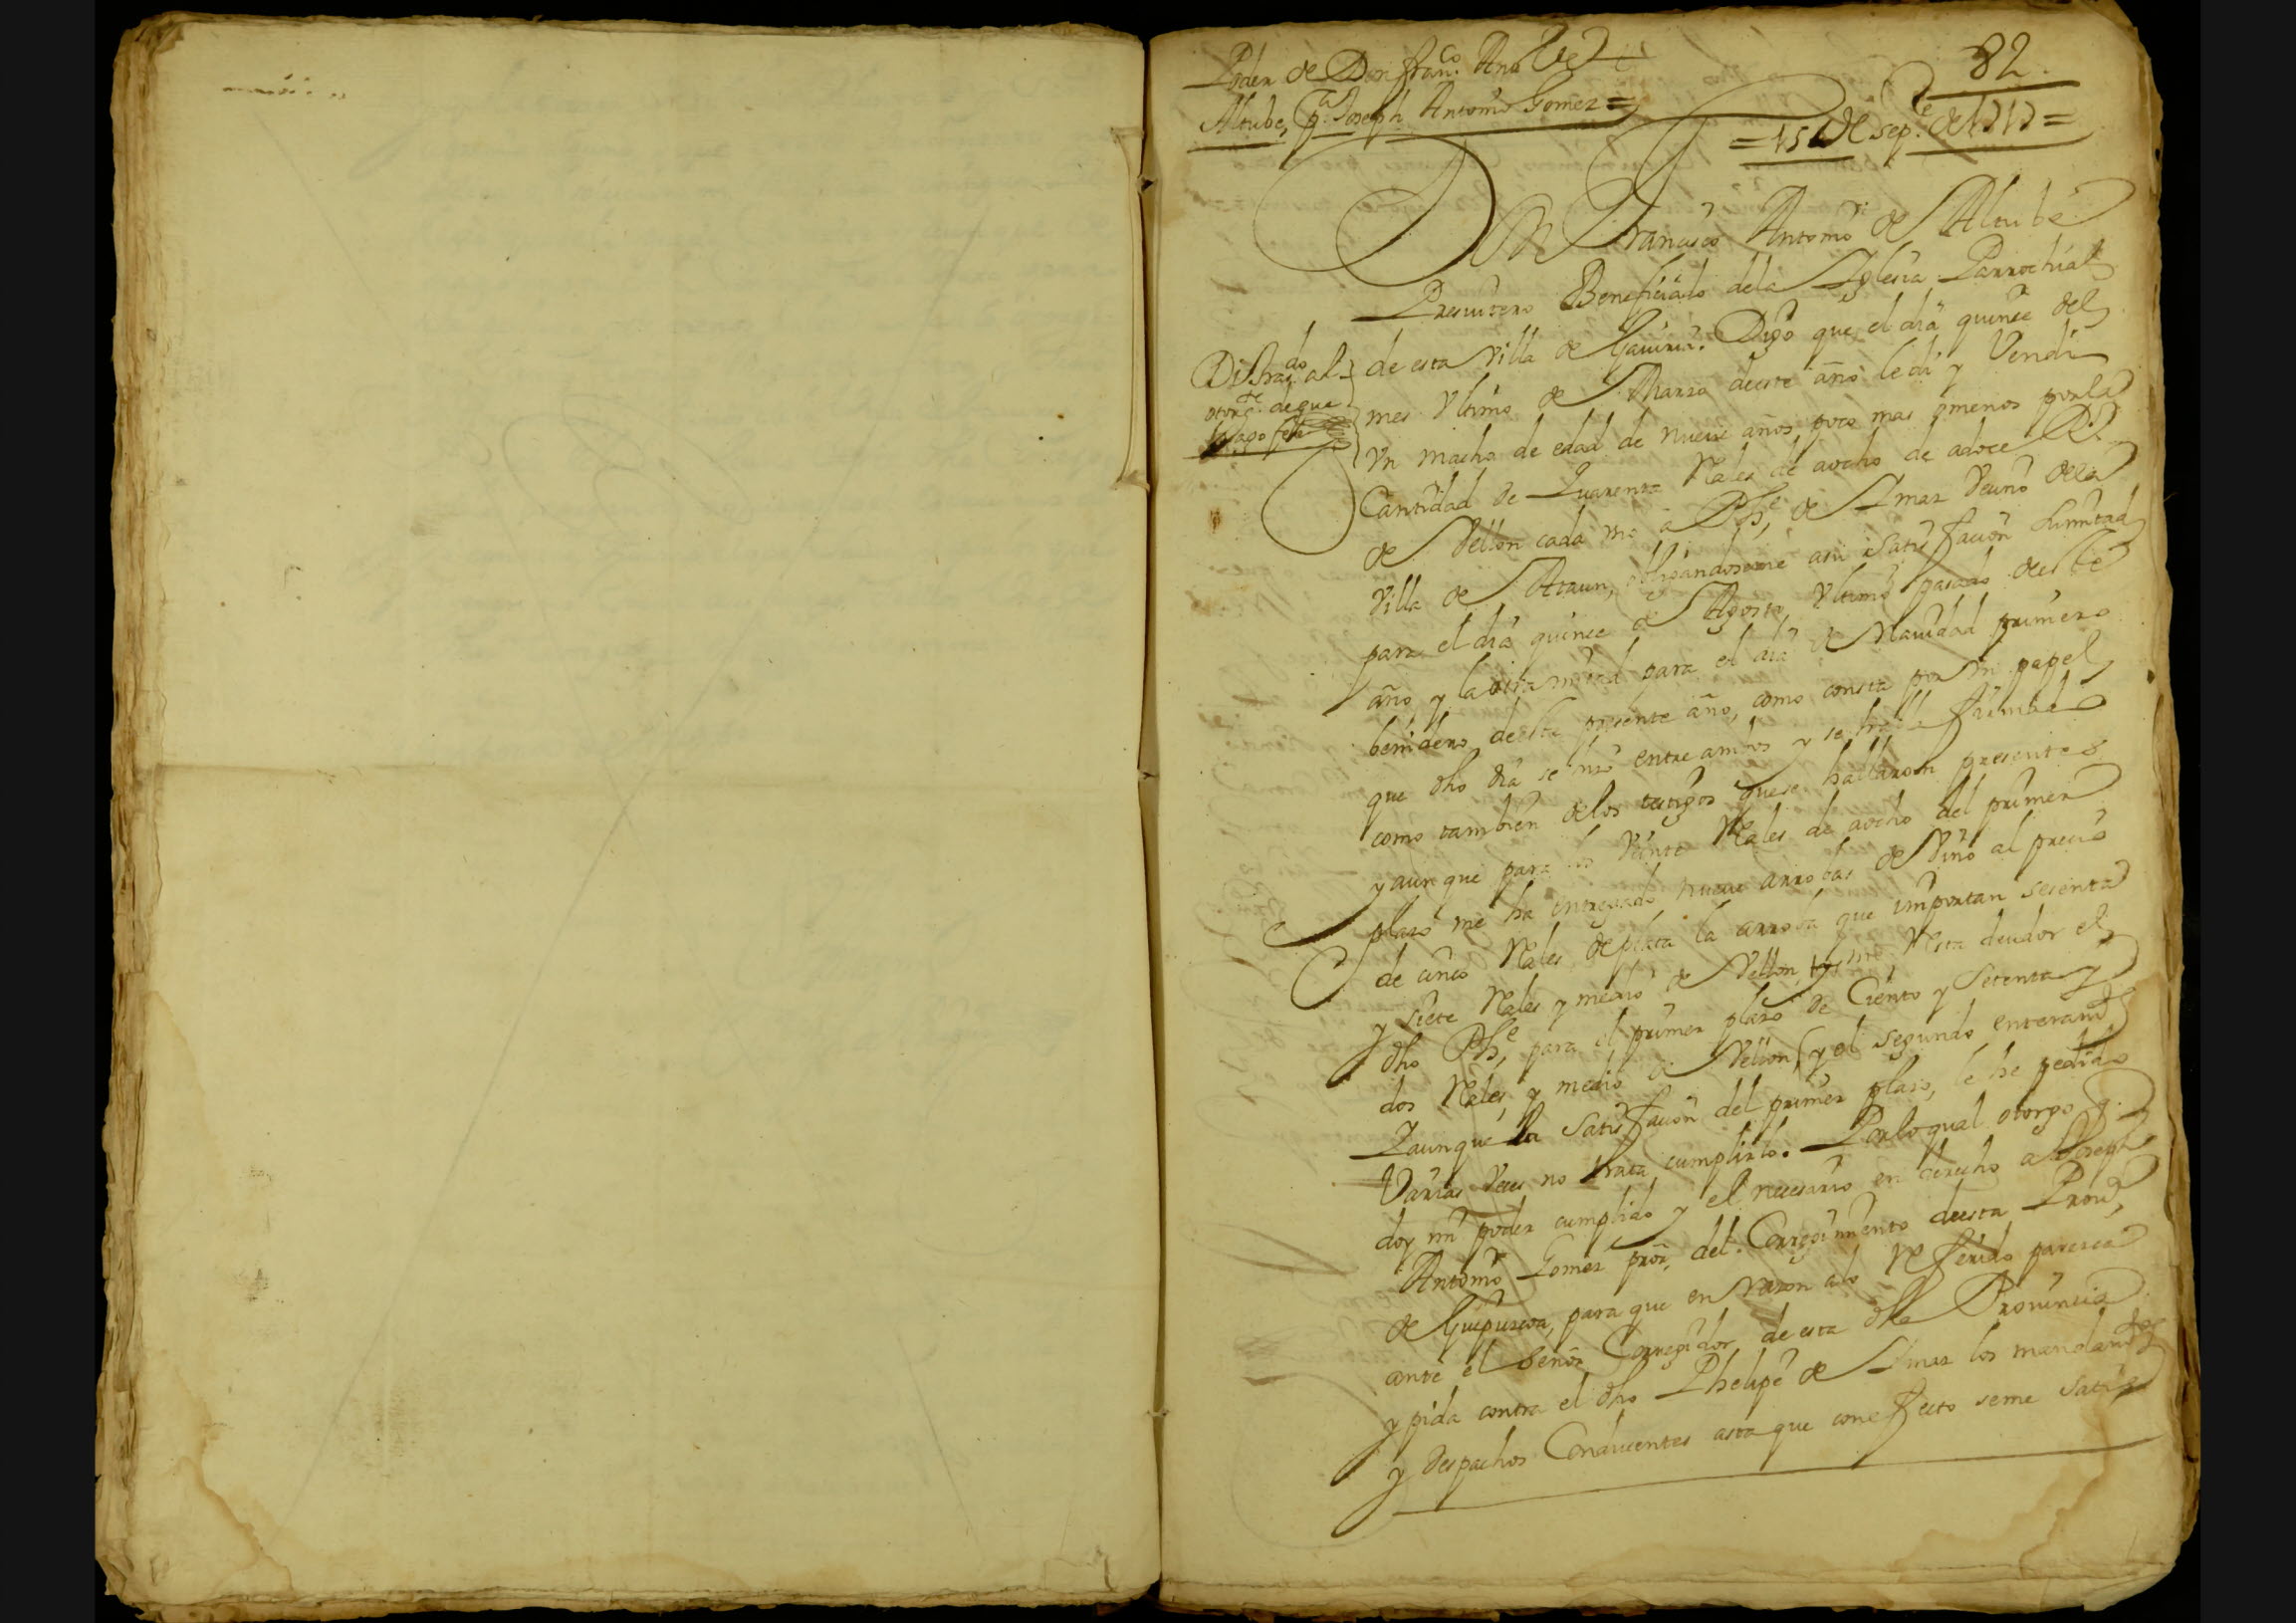 82.
Poder de Don fran.co Anto de
Altube, p.a Joseph Antonio Gomez =
= 15 de sep.e de 1717 =
Don Francisco Antonio de Altube
Presvitero Beneficiado dela Iglesia Parrochial
de esta Villa de Gaviria. Digo que el dia quinse del
mes Vltimo de Marzo deeste año le di y Vendi
Vn macho de edad de nueue años poco mas omenos porla
Cantidad de Quarenta Rales de aocho de adoce Rs.
de Vellon cada vno a Phe, de Amar Vecino dela
Villa de Ataun, obligandoseme asu satisfacion Lamitad
para el dia quince de Agosto Vltimo pasado deeste
año, y la otra mitad para el dia de Nauidad primero
benidero deeste presente año, como consta por Vn papel
que dho dia se hizo entre ambos y se halla firmado
como tambien delos testigos quese hallaron presentes
y aunque para los Veinte Rales de aocho del primer
plaso me ha entregado nueue arrobas de Vino al precio
de cinco Rales deplata la arroba que importan sesenta
y siete Rales y medio de Vellon, me resta deudor el
dho Phe, para el primer plaso de Ciento y Setenta y
dos Rales y medio de Vellon, y el segundo enteram.te
Yaunque la Satisfacion del primer plaso, le he pedido
Varias Veces no trata cumplirlo. Porloqual otorgo q.
doy mi poder cumplido y el necesario en derecho a Joseph
Antonio Gomez pror, del Corregimiento deesta Prou.a
de Guipuscoa, para que en Razon alo Referido paresca
ante el Señor Corregidor de esta dha Prouincia
y pida contra el dho Phelipe de Amar los mandam.tos
y Despachos Conducentes asta que conefecto seme satis
Di tras.do al
otorg.te deque
hago fee